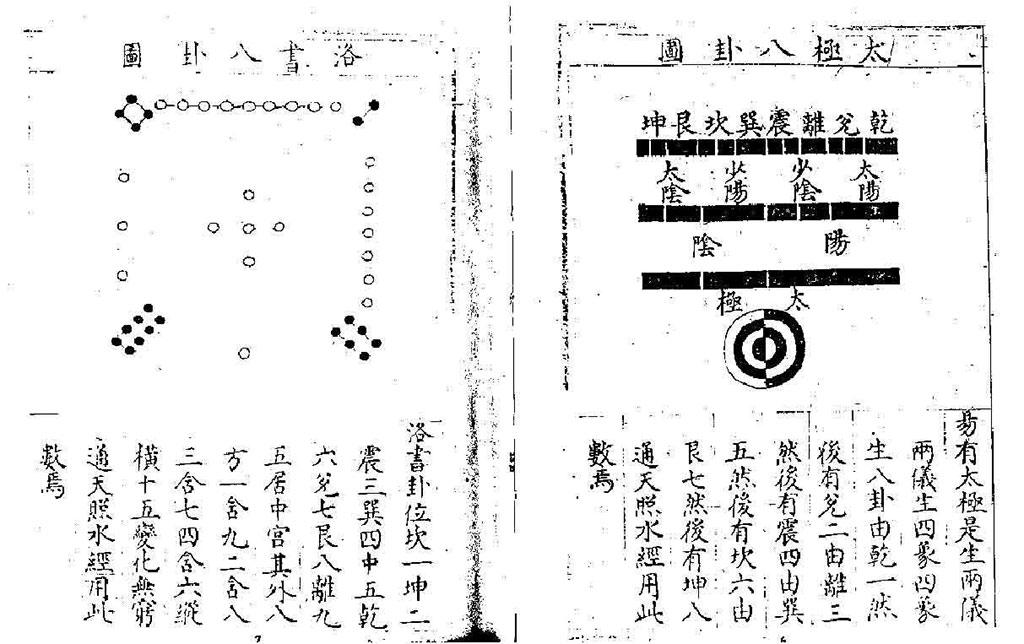 太極八卦圖
乾兌離震巽坎艮坤
太陽 少陰 少陽 太陰
陽 陰
太極
易有太極是生兩儀
兩儀生四象四象
生八卦由乾一然
後有兌二由離三
然後有震四由巽
五然後有坎六由
艮七然後有坤八
通天照水經用此
數焉
洛書八卦圖
洛書卦位坎一坤二
震三巽四中五乾
六兌七艮八離九
五居中宮其外八
方一含九二含八
三含七四含六縱
橫十五變化無窮
通天照水經用此
數焉